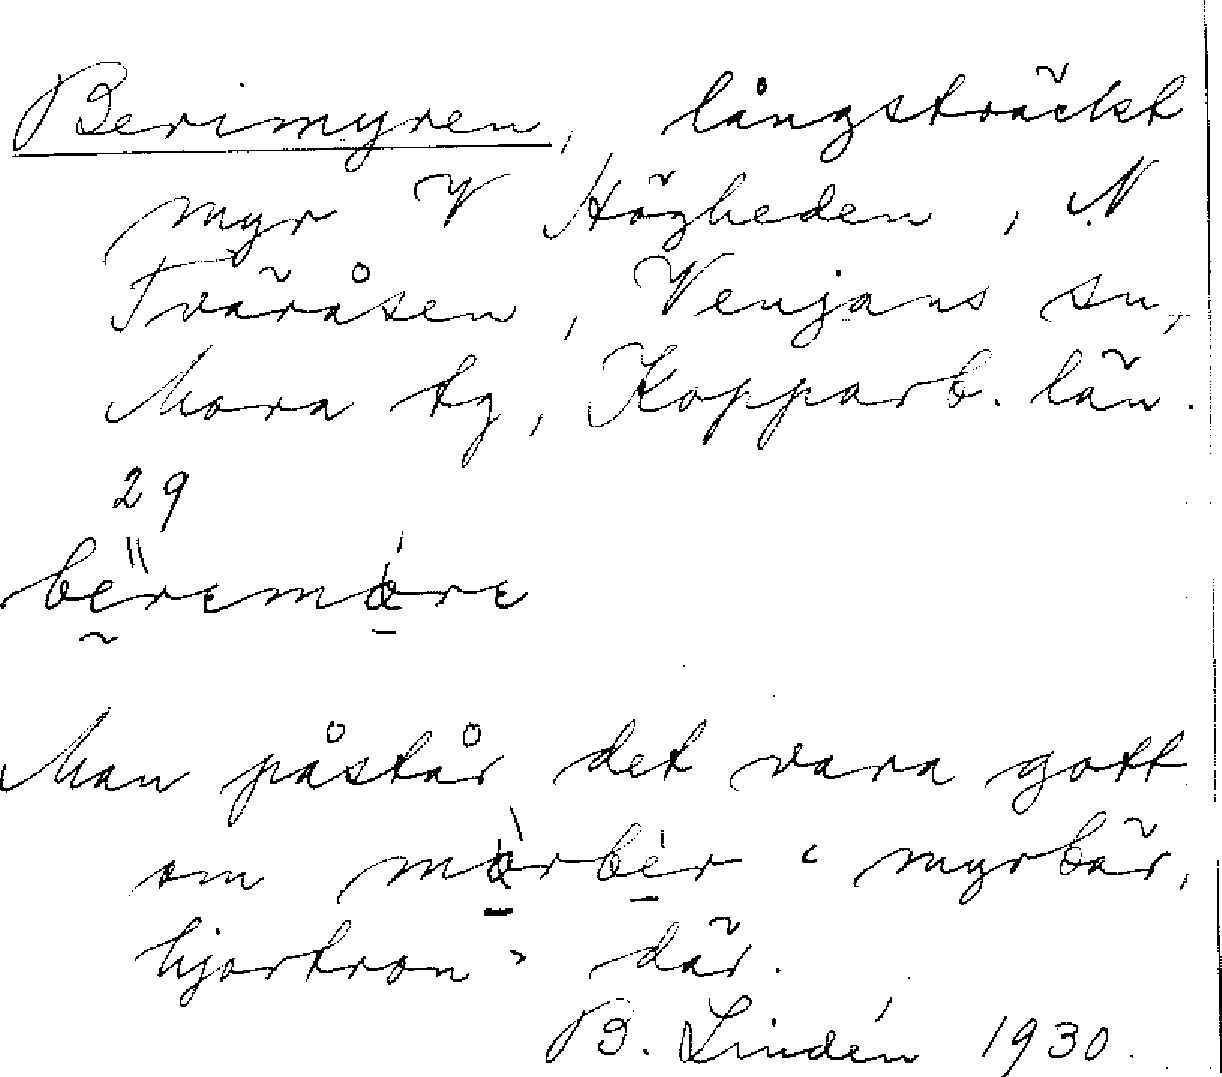 Berimyren, långsträckt
myr V Högheden, N
Tväråsen, Venjans sn,
Mora tg, Kopparb. län.
29
Man påstår det vara gott
om ‘myrbär,
hjortron’ där.
B. Lindén 1930.